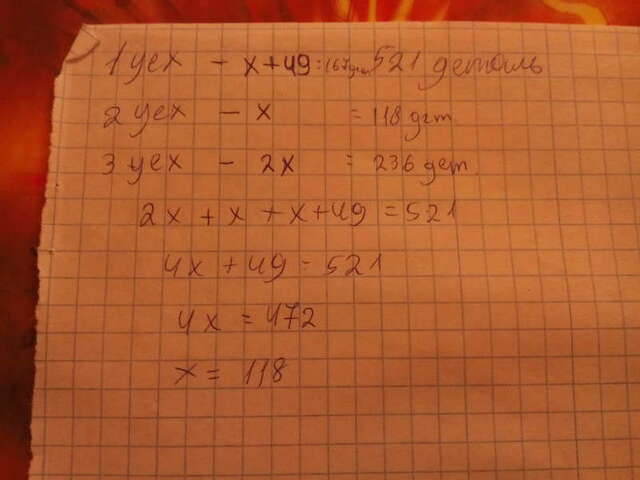 1 цех - x+49 = 167 дет 521 деталь
2 цех - x = 118 дет
3 цех - 2x = 236 дет
2x + x + x + 49 = 521
4x + 49 = 521
4x = 472
x = 118